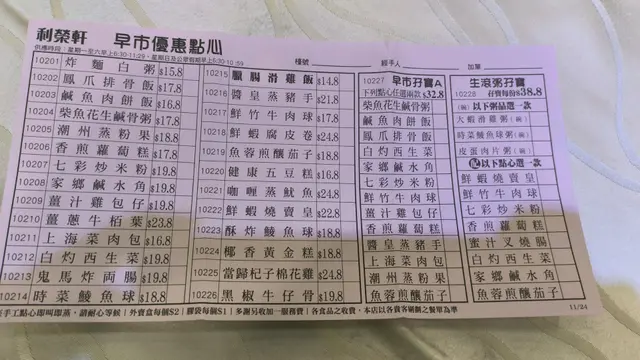 利榮軒 早市優惠點心
供應時段：星期一至六早上6:30-11:29，星期日及公眾假期早上6:30-10:59
檯號
經手人
加單
10201 炸麵白粥 $15.8
10202 鳳爪排骨飯 $17.8
10203 鹹魚肉餅飯 $17.8
10204 柴魚花生鹹骨粥 $17.8
10205 潮州蒸粉果 $18.8
10206 香煎蘿蔔糕 $17.8
10207 七彩炒米粉 $19.8
10208 家鄉鹹水角 $19.8
10209 薑汁雞包仔 $19.8
10210 薑蔥牛栢葉 $23.8
10211 上海菜肉包 $16.8
10212 白灼西生菜 $19.8
10213 鬼馬炸兩腸 $19.8
10214 時菜鯪魚球 $18.8
10215 臘腸滑雞飯 $14.8
10216 醬皇蒸豬手 $21.8
10217 鮮竹牛肉球 $17.8
10218 鮮蝦腐皮卷 $24.8
10219 魚蓉煎釀茄子 $18.8
10220 健康五豆糕 $16.8
10221 咖喱蒸魷魚 $24.8
10222 鮮蝦燒賣皇 $22.8
10223 酥炸鯪魚球 $18.8
10224 椰香黃金糕 $18.8
10225 當歸杞子棉花雞 $24.8
10226 黑椒牛仔骨 $19.8
10227 早市孖寶A
下列點心任選兩款 $32.8
柴魚花生鹹骨粥
鹹魚肉餅飯
鳳爪排骨飯
白灼西生菜
家鄉鹹水角
七彩炒米粉
鮮竹牛肉球
薑汁雞包仔
香煎蘿蔔糕
醬皇蒸豬手
上海菜肉包
潮州蒸粉果
魚蓉煎釀茄子
生滾粥孖寶
10228 孖寶每份$38.8
(碗)以下粥品選一款
大蝦滑雞粥(碗)
時菜鯪魚球粥(碗)
皮蛋肉片粥(碗)
配以下點心選一款
鮮蝦燒賣皇
鮮竹牛肉球
七彩炒米粉
香煎蘿蔔糕
蜜汁叉燒腸
白灼西生菜
家鄉鹹水角
魚蓉煎釀茄子
手工點心即叫即蒸，請耐心等候 | 外賣盒每個$2 | 膠袋每個$1 | 多謝另收加一服務費 | 各食品之收費，本店以各賓客刷餅之餐單為準
11/24